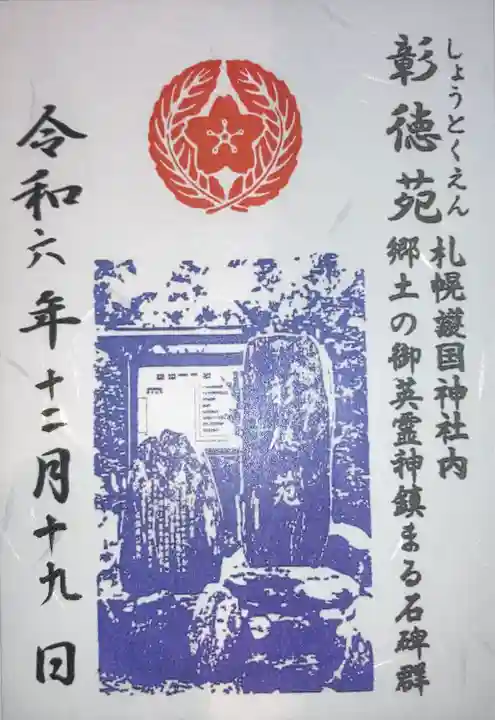 しょうとくえん
彰徳苑
札幌護国神社内
郷土の御英霊神鎮まる石碑群
彰徳苑
令和六年十二月十九日